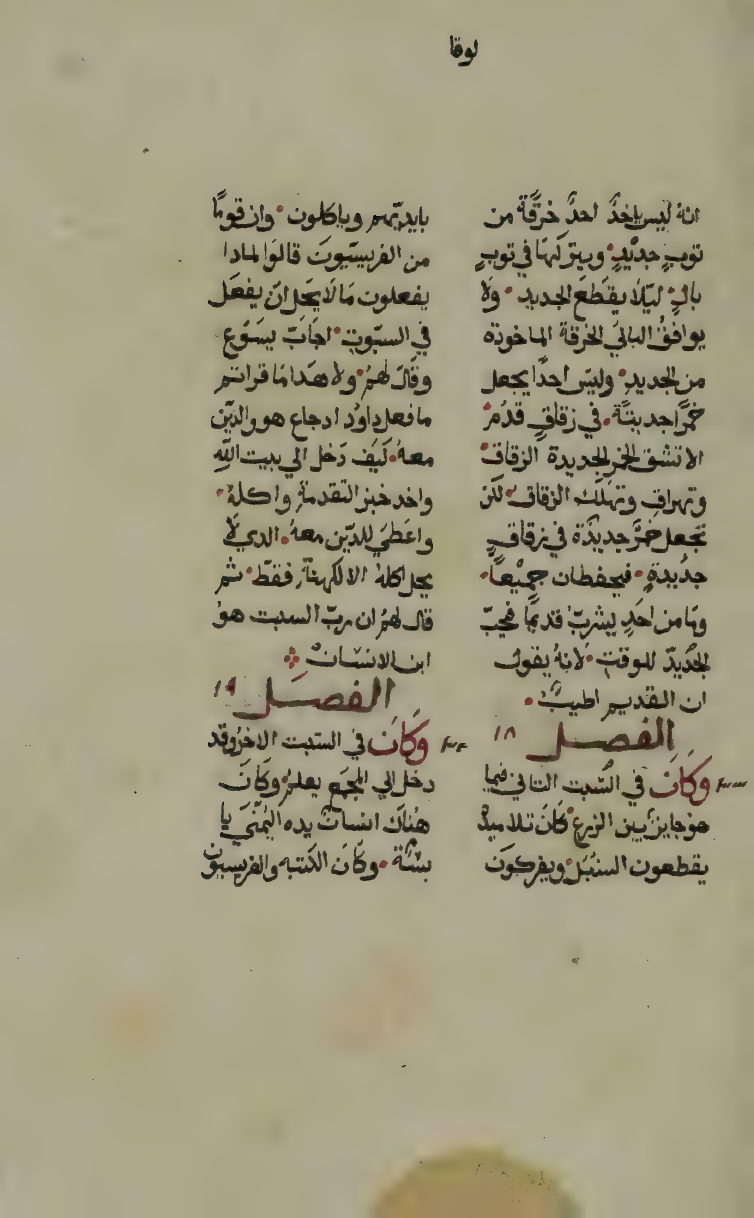 لوقا
انهُ ليس ياخدُ احدٌ خرقَّة من
توبٍ جديدٍ ويتركهَا في توبٍ
بالٍ ليَلا يقطعَ الجديد ولا
يوافقُ البالي الخرقة الماخوده
من الجديد وليس احدًا يجعل
خمرًا جديتة في زقاقٍ قدُمٌ
الا تشق الخمر الجديدة الزقاق
وتهراق وتهلك الزقاق لكن
تجعل خمرٌ جديدَة في زقاقٍ
جدُيدةٍ فيحفظان جميْعاً
وما من احدٍ يشربُ قديمًا فيحبّ
الجديدّ للوقت لانهُ يقول
ان القديم اطيبُ
الفصل ١٨
وكانَ في السَبت التاني فيما
هو جايزٌ بين الزرع كانَ تلاميدُ
يقطعون السنبل ويفركونَ
بايديّهم وياكلون وان قومًا
من الفريسيّونَ قالوا لمادا
يفعلون مَا لاَ يحل انَ يفعَل
في السبّوت اجابَ يسَوع
وقالَ لهمُ ولا هدا مَا قراتم
ما فعل داوُد اد جاع هو والدّين
معهُ كيف دَخل الي بيت اللّهِ
واخد خبز التقدمة واكلهُ
واعَطيَ للدّين معهُ الدي لاَ
يحل اكلهُ الا للكهنَة فقطْ ثم
قال لهمُ ان ربّ السبت هوُ
ابن الانسَان
الفصَل ١٩
وَكَانَ في السَبت الاخرُ وقد
دخل الي المجمع يعلمُ وكَانَ
هناك انسان يده اليُمنيَ يا
بسَّة وكانَ الكتبه والفريسيون